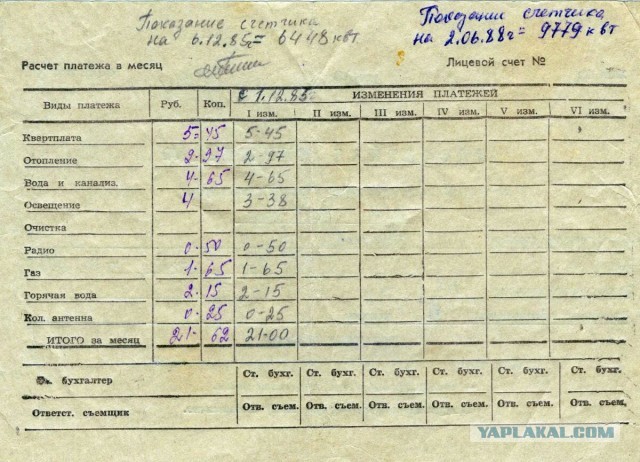 Показание счетчика
на 6.12.85г= 6448 квт
Показании счетчика
на 2.06.88г= 9779 квт
Расчет платежа в месяц
Лицевой счет №
Виды платежа Руб. Коп. с 1.12.85г ИЗМЕНЕНИЯ ПЛАТЕЖЕЙ
I изм. II изм. III изм. IV изм. V изм. VI изм.
Квартплата 5- 45 5-45
Отопление 2- 97 2-97
Вода и канализ. 4- 65 4-65
Освещение 4 3-38
Очистка
Радио 0- 50 0-50
Газ 1- 65 1-65
Горячая вода 2- 15 2-15
Кол. антенна 0- 25 0-25
ИТОГО за месяц 21- 62 21-00
бухгалтер Ст. бухг. Ст. бухг. Ст. бухг. Ст. бухг. Ст. бухг. Ст. бухг.
Ответст. съемщик Отв. съем. Отв. съем. Отв. съем. Отв. съем. Отв. съем. Отв. съем.
YAPLAKAL.COM